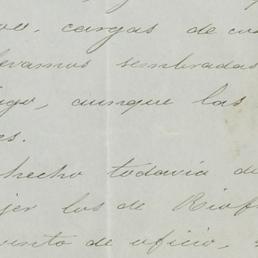 cargas de
levamos sembradas
aunque las
es.
hecho todavia de
jer los de Riof
iento de oficio,